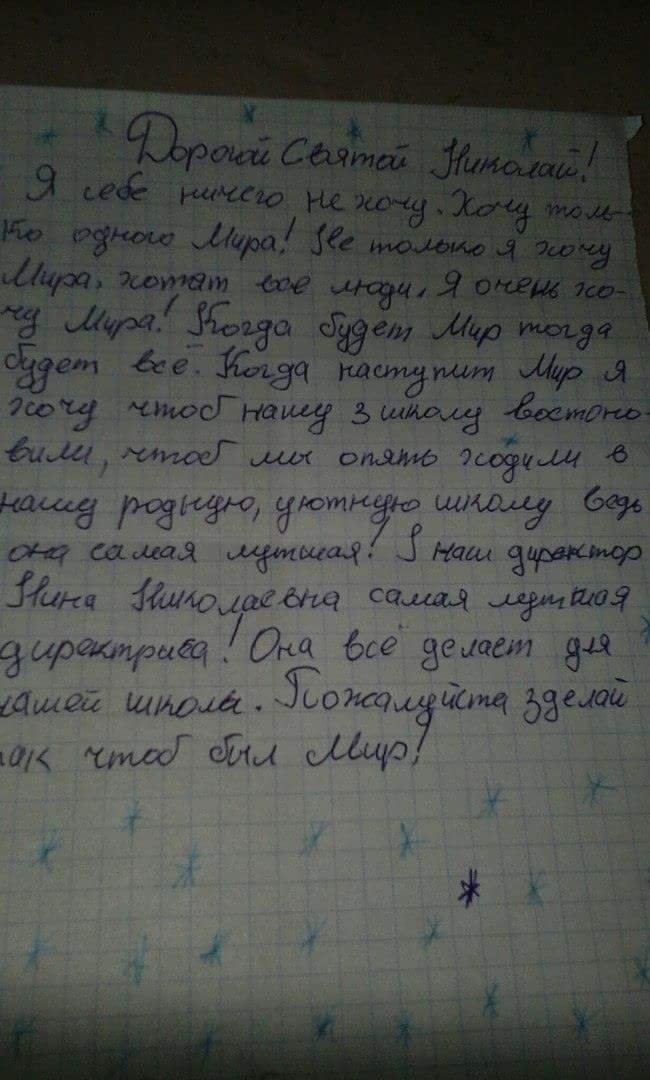 Дорогой Святой Николай!
Я себе ничего не хочу. Хочу толь-
ко одного Мира! Не только я хочу
Мира, хотят все люди. Я очень хо-
чу Мира! Когда будет Мир тогда
будет всё. Когда наступит Мир я
хочу чтоб нашу 3 школу востоно-
вили, чтоб мы опять ходили в
нашу родную, уютную школу ведь
она самая лутшая! И наш директор
Нина Николаевна самая лутшая
директриса! Она всё делает для
нашей школы. Пожалуйста зделай
так чтоб был Мир!